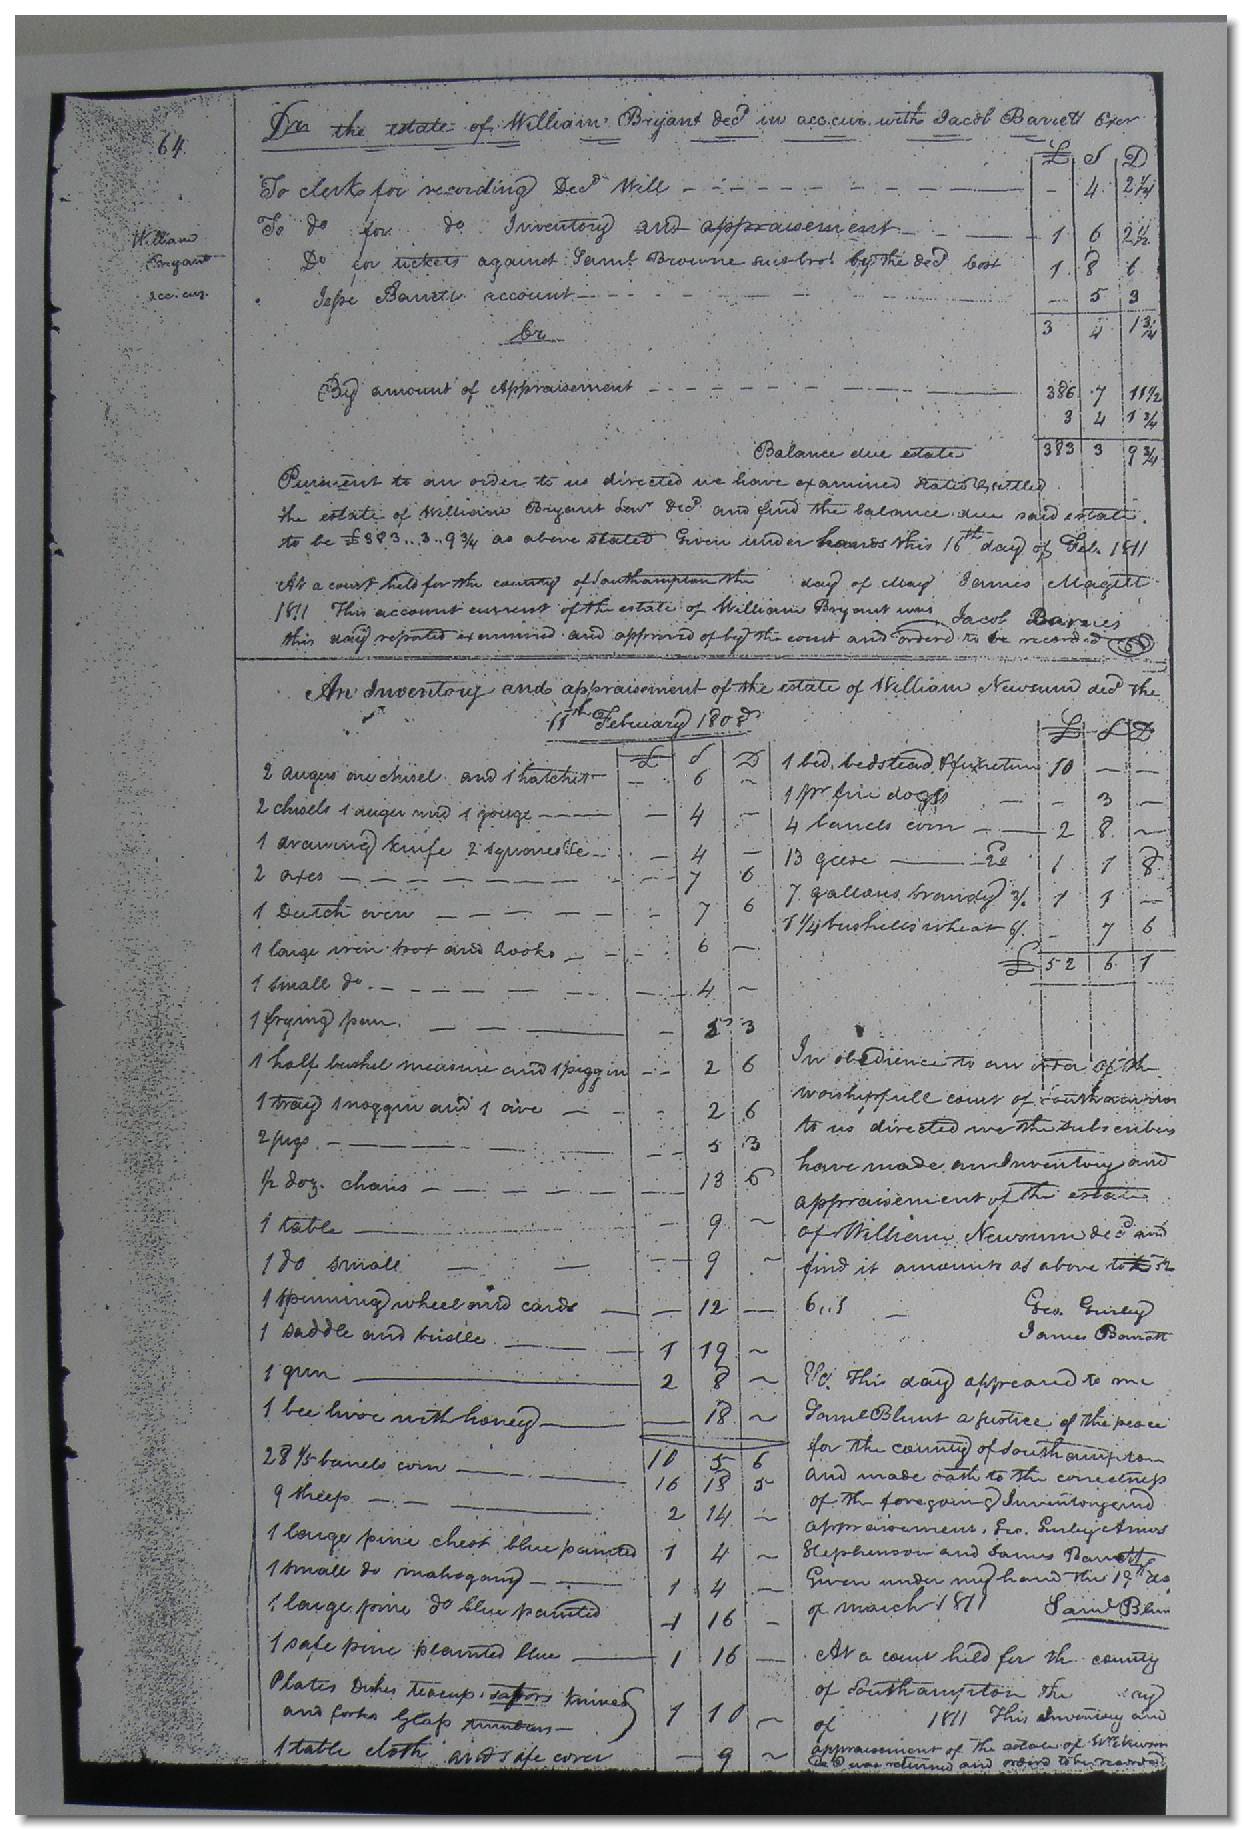 64
William
Bryant
acc. cur.
Dr the estate of William Bryant decd in acc. cur. with Jacob Barrett Exor
£ S D
To clerk for recording Decd Will - 4 2 1/4
To do for do Inventory and appraisement 1 6 2 1/2
Do for tickets against Saml. Browne by the decd Cost 1 8 6
Jesse Barrett account 5 3
3 4 1 3/4
Cr
By amount of Appraisement 386 7 11 1/2
3 4 1 3/4
Balance due estate 383 3 9 3/4
Pursuent to an order to us directed we have examined stated & settled
the estate of William Bryant Senr decd and find the balance due said estate
to be £383..3..9 3/4 as above stated Given under hands this 16th day of Feb. 1811
At a court held for the county of Southampton the day of May James Magett
1811 This account current of the estate of William Bryant was Jacob Barnes
this day reported examined and approved of by the court and orderd to be recorded
An Inventory and appraisement of the estate of William Newsum decd the
11th February 1808
£ S D
2 augers one chisel and 1 hatchet - 6 ~
2 chisels 1 auger and 1 gouge - 4 -
1 drawing knife 2 squares &c - 4 -
2 axes 7 6
1 Dutch oven 7 6
1 large iron pot and hooks 6 -
1 small do. 4 ~
1 frying pan 5 3
1 half bushel measure and 1 piggin 2 6
1 tray 1 noggin and 1 sive 2 6
2 jugs 5 3
1/2 doz. chairs 13 6
1 table 9 ~
1 do small 9 ~
1 spinning wheel and cards 12 -
1 saddle and bridle 1 19 ~
1 gun 2 8 ~
1 bee hive with honey 18 ~
10 5 6
28 1/5 barrels corn 16 18 5
9 sheep 2 14 ~
1 large pine chest blue painted 1 4 ~
1 small do mahogany 1 4 -
1 large pine do blue painted 1 16 -
1 safe pine peainted blue 1 16 -
Plates Dishes teacups knives
and forks Glass tumblers 1 10 ~
1 table cloth and safe cover - 9 ~
£ S D
1 bed, bedstead & furneture 10 - -
1 pr fire dogs - 3 -
4 barrels corn 2 8 ~
13 geese 1 1 8
7 gallons brandy 3/. 1 1 -
1 1/4 bushells wheat 6/. - 7 6
£ 52 6 1
In obedience to an order of the
worshipfull court of Southampton
to us directed we the subscribers
have made an Inventory and
appraisement of the estate
of William Newsum decd and
find it amounts as above to £52
6..1
Geo. Gurley
James Barrett
This day appeared to me
Saml Blunt a justice of the peace
for the county of Southampton
and made oath to the correctness
of the foregoing Inventory and
appraisement, Geo. Gurley Amos
Stephenson and James Barrett
Given under my hand the 19th day
of march 1811 Saml Blun
At a court held for the county
of Southampton the day
of 1811 This Inventory and
appraisement of the estate of
decd was returned and orderd to be recorded